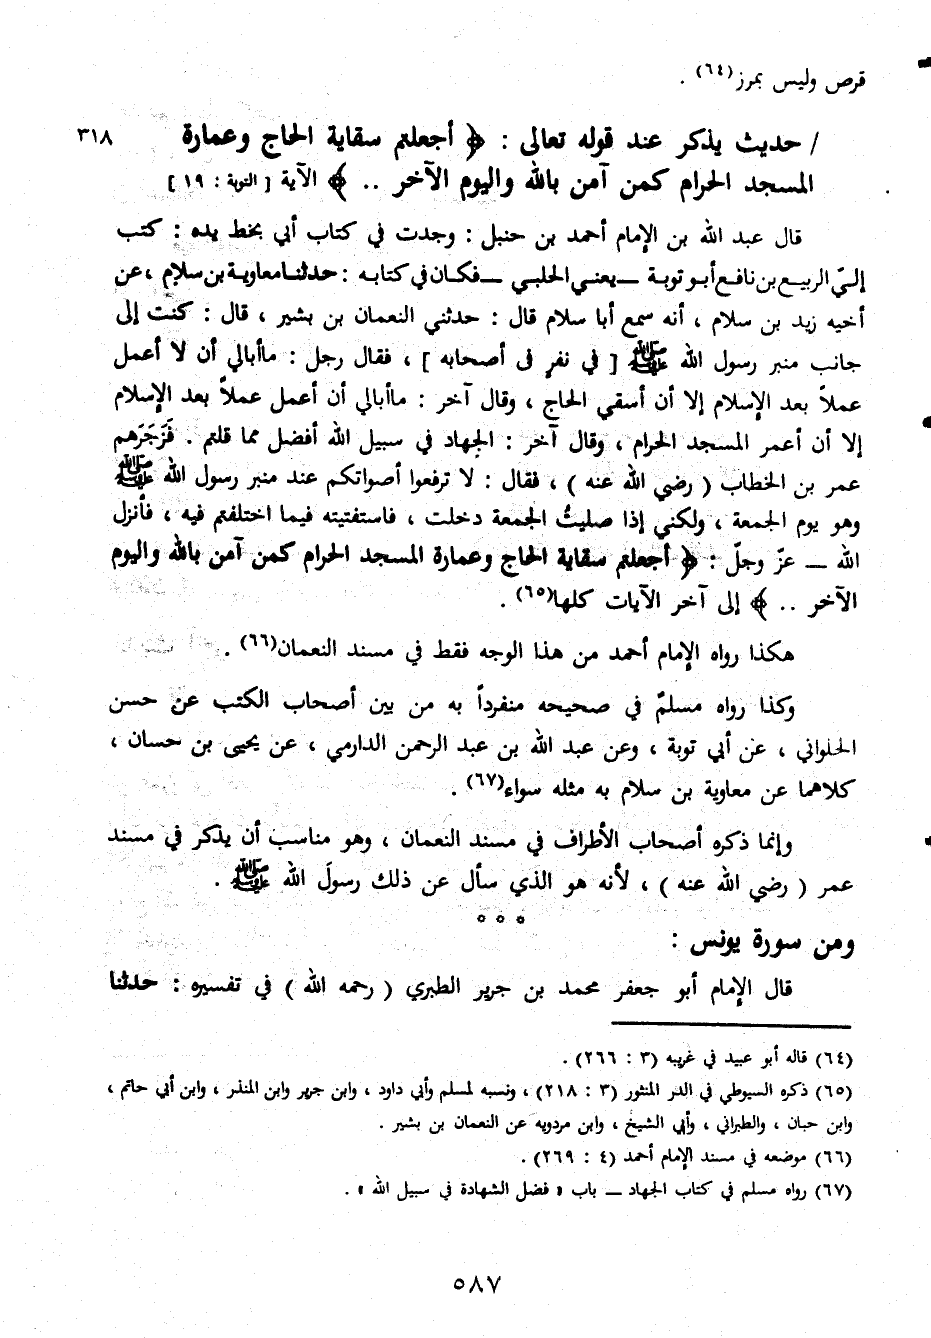 قرص وليس بمرز(٦٤) .
/ حديث يذكر عند قوله تعالى : ﴿ أجعلتم سقاية الحاج وعمارة ٣١٨
المسجد الحرام كمن آمن بالله واليوم الآخر .. ﴾ الآية [ التوبة : ١٩ ]
قال عبد الله بن الإمام أحمد بن حنبل : وجدت في كتاب أبي بخط يده : كتب
إليّ الربيع بن نافع أبو توبة ــ يعني الحلبي ــ فكان في كتابه : حدثنا معاوية بن سلام ، عن
أخيه زيد بن سلام ، أنه سمع أبا سلام قال : حدثني النعمان بن بشير ، قال : كنت إلى
جانب منبر رسول الله ﷺ [ في نفرٍ في أصحابه ] ، فقال رجل : ماأبالي أن لا أعمل
عملاً بعد الإسلام إلا أن أسقي الحاج ، وقال آخر : ماأبالي أن أعمل عملاً بعد الإسلام
إلا أن أعمر المسجد الحرام ، وقال آخر : الجهاد في سبيل الله أفضل مما قلتم . فَزَجَرَهم
عمر بن الخطاب ( رضي الله عنه ) ، فقال : لا ترفعوا أصواتكم عند منبر رسول الله ﷺ
وهو يوم الجمعة ، ولكني إذا صليتُ الجمعة دخلت ، فاستفتيته فيما اختلفتم فيه ، فأنزل
الله ــ عزّ وجلّ : ﴿ أجعلتم سقاية الحاج وعمارة المسجد الحرام كمن آمن بالله واليوم
الآخر .. ﴾ إلى آخر الآيات كلها(٦٥) .
هكذا رواه الإمام أحمد من هذا الوجه فقط في مسند النعمان(٦٦) .
وكذا رواه مسلمٌ في صحيحه منفرداً به من بين أصحاب الكتب عن حسن
الحلواني ، عن أبي توبة ، وعن عبد الله بن عبد الرحمن الدارمي ، عن يحيى بن حسان ،
كلاهما عن معاوية بن سلام به مثله سواء(٦٧) .
وإنما ذكره أصحاب الأطراف في مسند النعمان ، وهو مناسب أن يذكر في مسند
عمر ( رضي الله عنه ) ، لأنه هو الذي سأل عن ذلك رسولَ الله ﷺ .
° ° °
ومن سورة يونس :
قال الإمام أبو جعفر محمد بن جرير الطبري ( رحمه الله ) في تفسيره : حدثنا
(٦٤) قاله أبو عبيد في غريبه (٣ : ٢٦٦) .
(٦٥) ذكره السيوطي في الدر المنثور (٣ : ٢١٨) ، ونسبه لمسلم وأبي داود ، وابن جرير وابن المنذر ، وابن أبي حاتم ،
وابن حبان ، والطبراني ، وأبي الشيخ ، وابن مردويه عن النعمان بن بشير .
(٦٦) موضعه في مسند الإمام أحمد (٤ : ٢٦٩) .
(٦٧) رواه مسلم في كتاب الجهاد ــ باب « فضل الشهادة في سبيل الله » .
٥٨٧